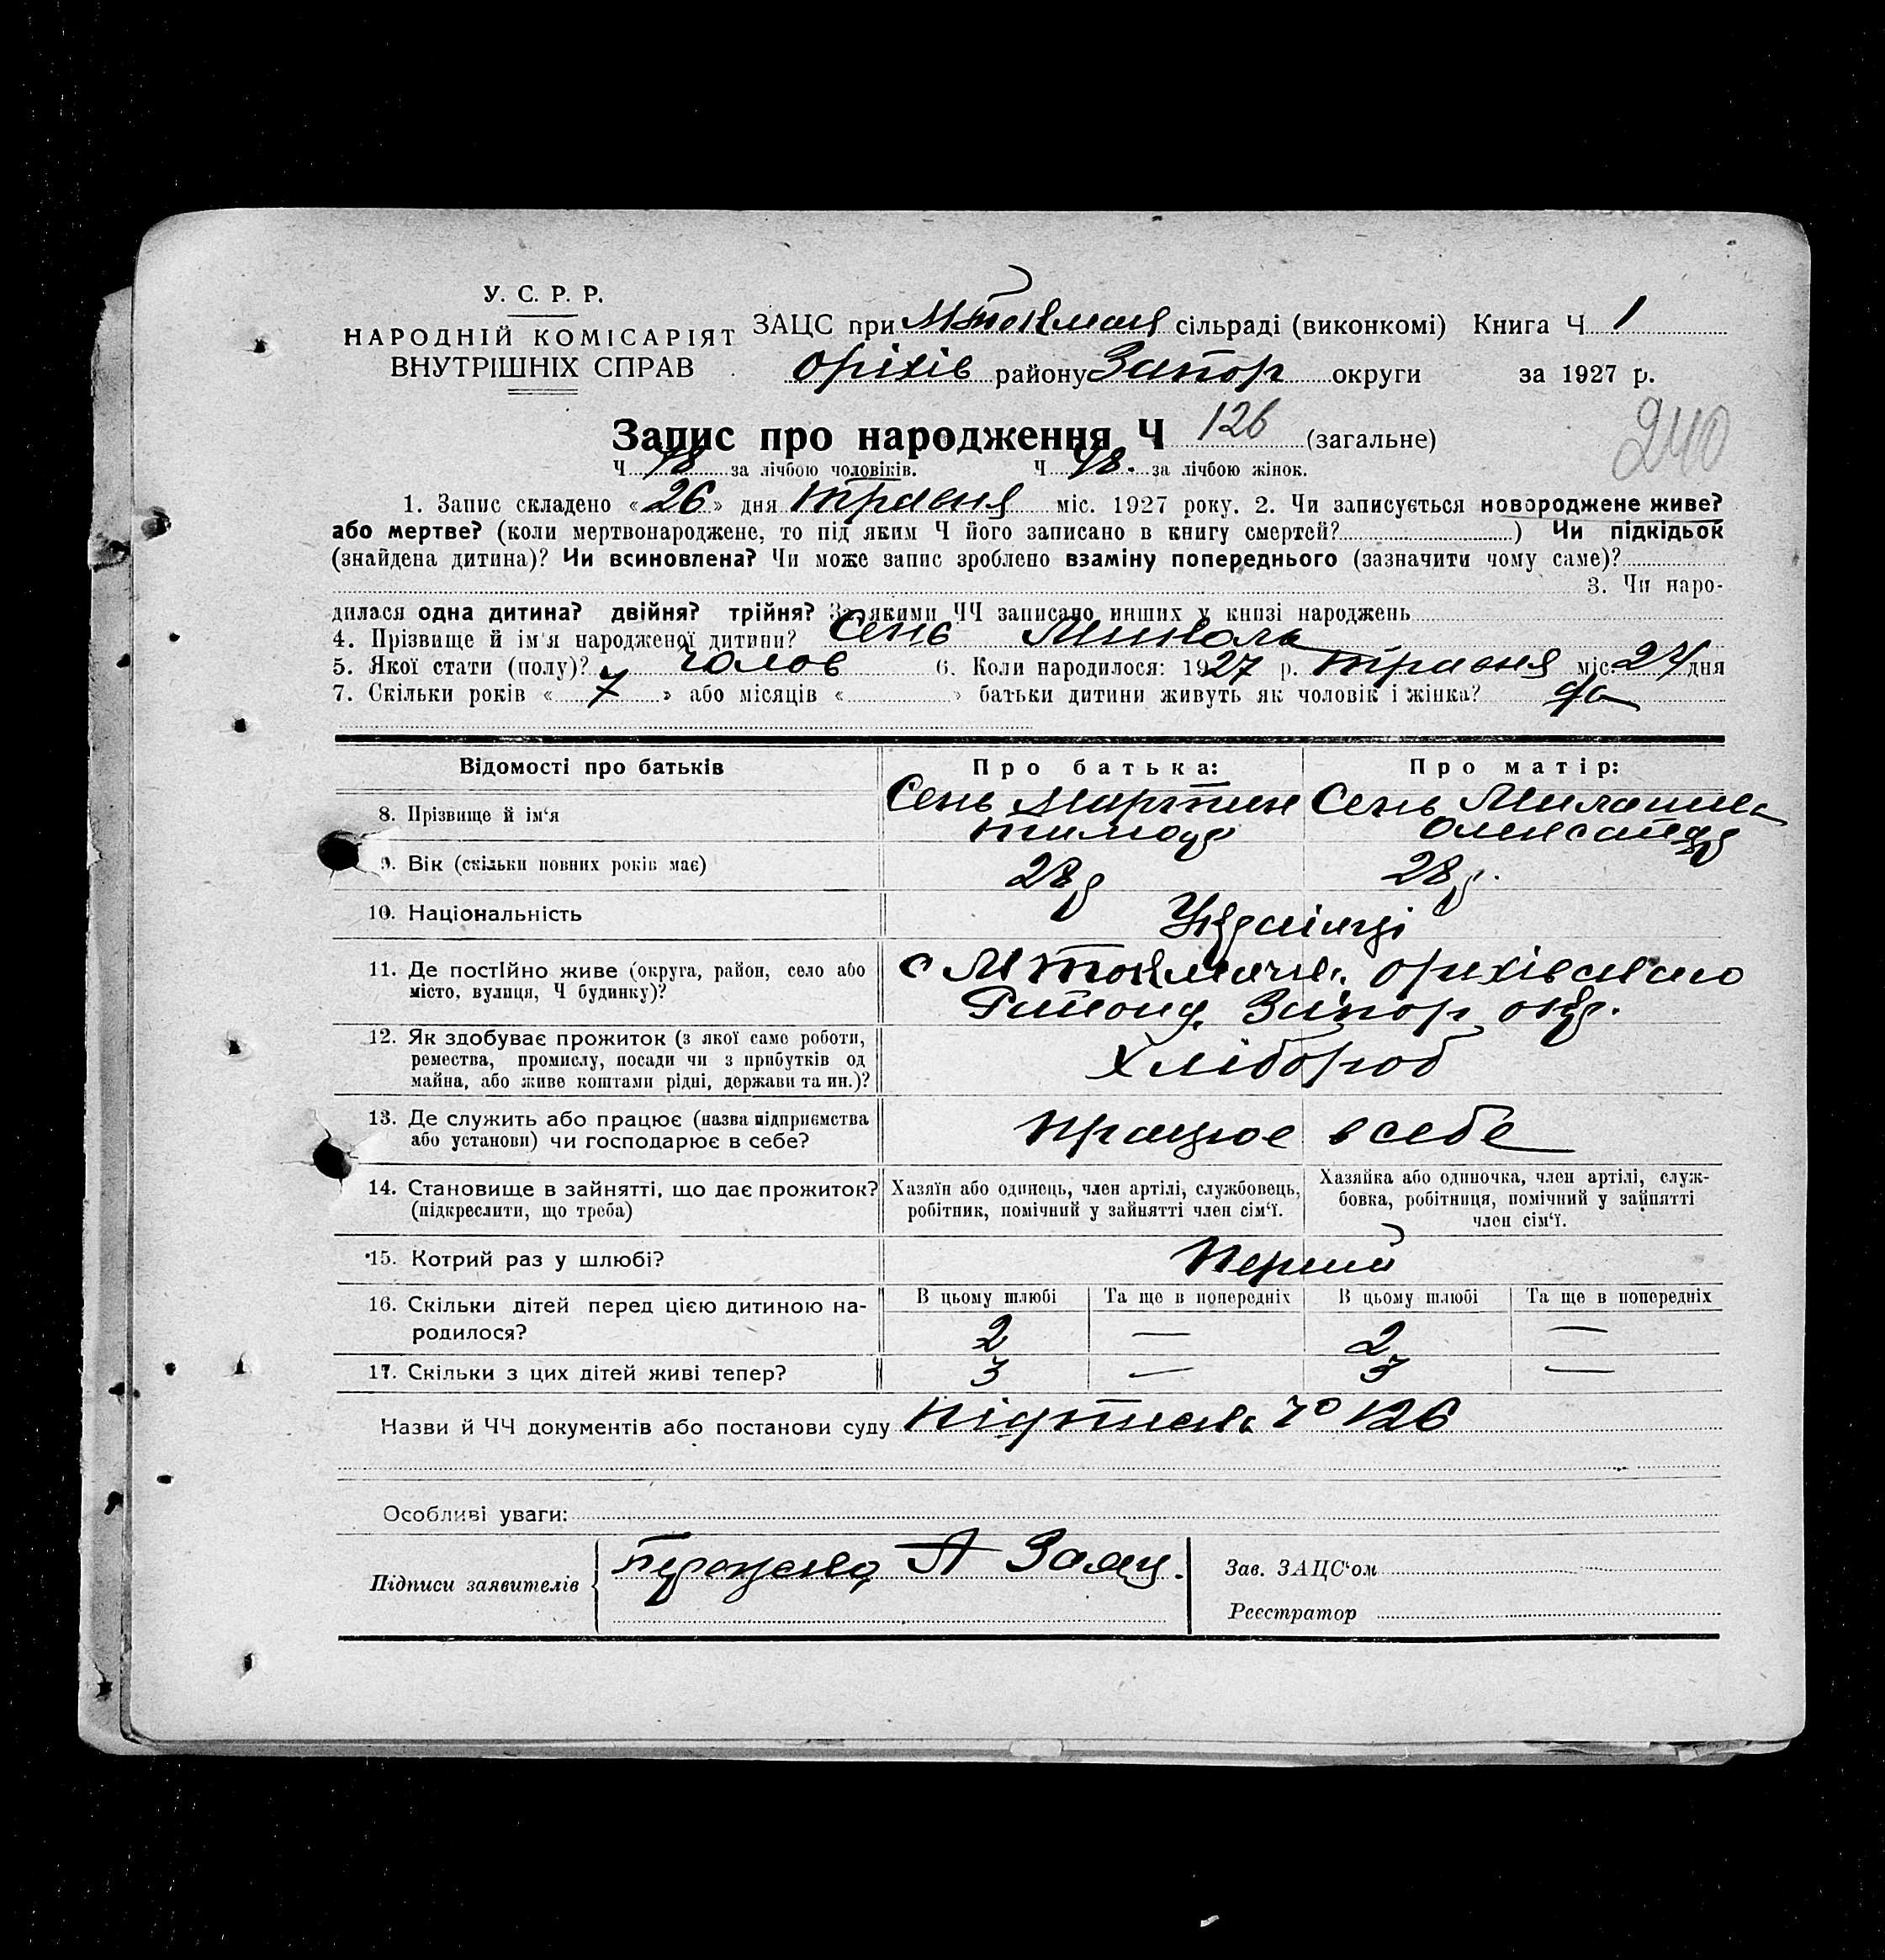 У. С. Р. Р.
НАРОДНІЙ КОМІСАРІЯТ
ВНУТРІШНІХ СПРАВ
ЗАЦС при МТокмач сільраді (виконкомі) Книга Ч 1
Оріхів району Запор округи за 1927 р.
240
Запис про народження Ч 126 (загальне)
Ч 78 за лічбою чоловіків. Ч 48. за лічбою жінок.
1. Запис складено «26» дня травня міс. 1927 року. 2. Чи записується новороджене живе?
або мертве? (коли мертвонароджене, то під яким Ч його записано в книгу смертей? ) Чи підкідьок
(знайдена дитина)? Чи всиновлена? Чи може запис зроблено взаміну попереднього (зазначити чому саме)?
3. Чи наро-
дилася одна дитина? двійня? трійня? За якими ЧЧ записано инших у книзі народжень
4. Прізвище й ім'я народженої дитини? Сень Микола
5. Якої стати (полу)? чолов 6. Коли народилося: 1927 р. травня міс. 24 дня
7. Скільки років «7» або місяців « » батьки дитини живуть як чоловік і жінка? да
Відомості про батьків Про батька: Про матір:
8. Прізвище й ім'я Сень Мартин Сень Милашка
Тимоф Олександр
9. Вік (скільки повних років має) 28 р 28 р.
10. Національність Українці
11. Де постійно живе (округа, район, село або
місто, вулиця, Ч будинку)?
с МТокмачк. Оріхівського
Району Запор окр.
12. Як здобуває прожиток (з якої саме роботи,
ремества, промислу, посади чи з прибутків од
майна, або живе коштами рідні, держави та ин.)?
Хлібороб
13. Де служить або працює (назва підприємства
або установи) чи господарює в себе?
працює в себе
14. Становище в зайнятті, що дає прожиток?
(підкреслити, що треба)
Хазяїн або одинець, член артілі, службовець,
робітник, помічний у зайнятті член сім'ї.
Хазяйка або одиночка, член артілі, служ-
бовка, робітниця, помічний у зайнятті
член сім'ї.
15. Котрий раз у шлюбі? Перший
16. Скільки дітей перед цією дитиною на-
родилося?
В цьому шлюбі Та ще в попередніх В цьому шлюбі Та ще в попередніх
2 — 2 —
17. Скільки з цих дітей живі тепер? 3 — 3 —
Назви й ЧЧ документів або постанови суду 126
Особливі уваги:
Підписи заявителів А Заяц.
Зав. ЗАЦС'ом
Реєстратор